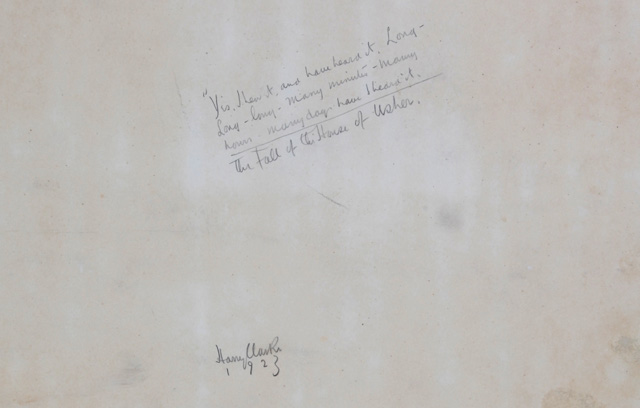 "Yes. I hear it, and have heard it. Long-
Long - long - many minutes - many
hours many days have I heard it.
The Fall of the House of Usher.
Harry Clarke
1923